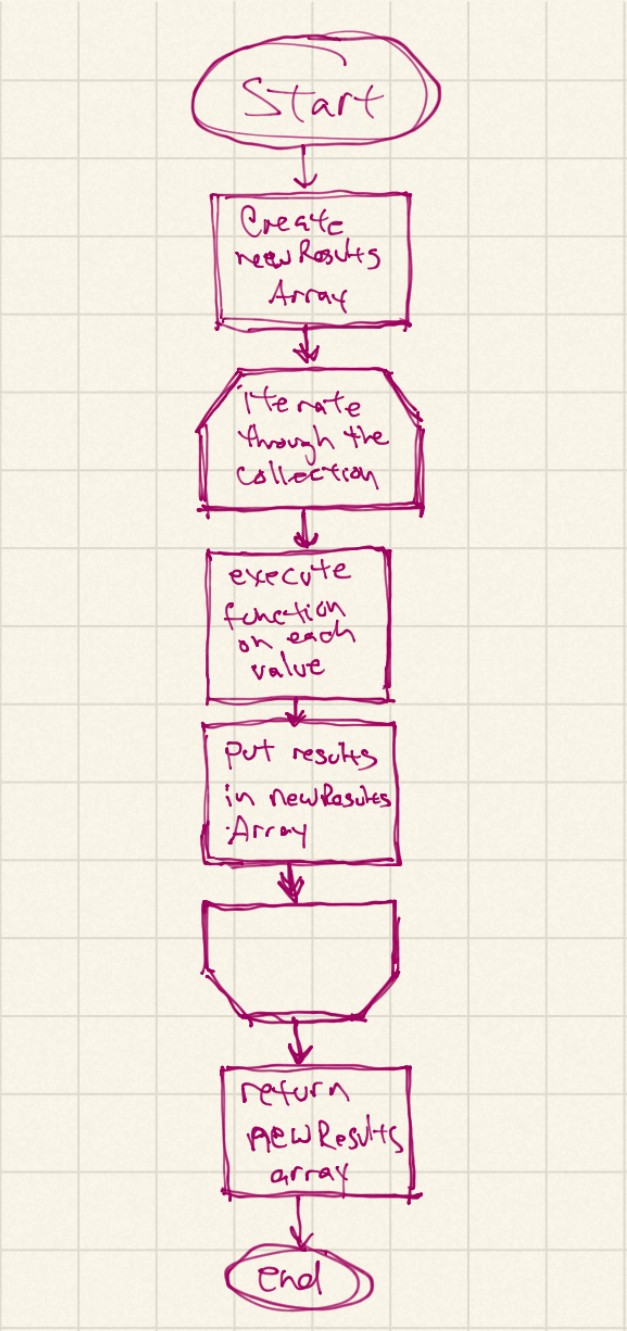 Start
Create
newResults
Array
iterate
through the
collection
execute
function
on each
value
Put results
in newResults
Array
return
newResults
array
end